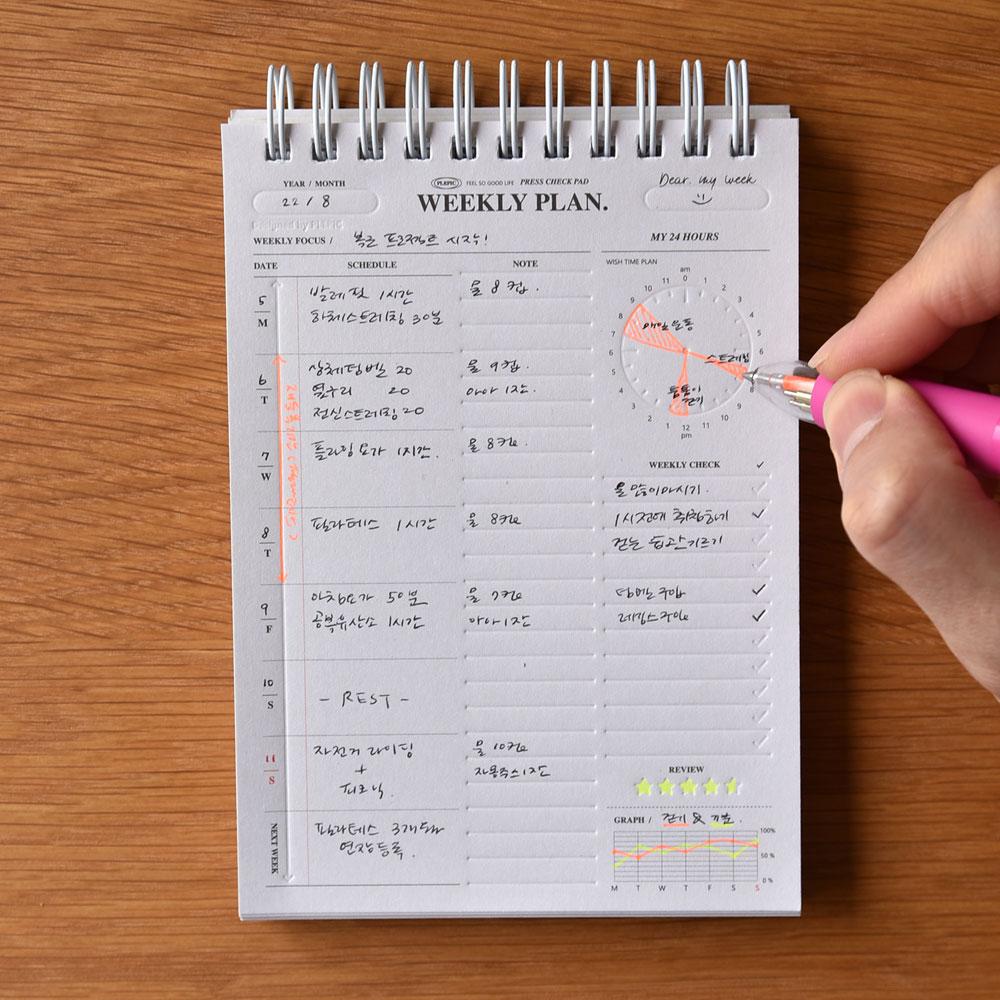 YEAR / MONTH
22 / 8
PLEPIC FEEL SO GOOD LIFE PRESS CHECK PAD
WEEKLY PLAN.
Dear. my week
Designed by PLEPIC
WEEKLY FOCUS / 복근 프로젝트 시작!
MY 24 HOURS
DATE SCHEDULE NOTE
5
M
발레핏 1시간
하체스트레칭 30분
물 8컵.
6
T
상체덤벨 20
옆구리 20
전신스트레칭 20
물 9컵.
아아 1잔.
7
W
플라잉요가 1시간.
물 8컵
8
T
필라테스 1시간
물 8컵
9
F
아침요가 50분
공복유산소 1시간
물 7컵
아아 1잔
10
S
- REST -
11
S
자전거 라이딩
+
피크닉.
물 10컵
자몽주스 1잔
NEXT WEEK
필라테스 3개월
연장등록.
WISH TIME PLAN
am
0
1
2
3
4
5
6
7
8
9
10
11
12
pm
1
2
3
4
5
6
7
8
9
10
11
매일운동
스트레칭
틈틈이
걷기
WEEKLY CHECK
물 많이마시기.
1시전에 취침하기
걷는 습관기르기
덤벨구입
레깅스구입
REVIEW
GRAPH / 걷기 & 기분.
100%
50 %
0 %
M T W T F S S